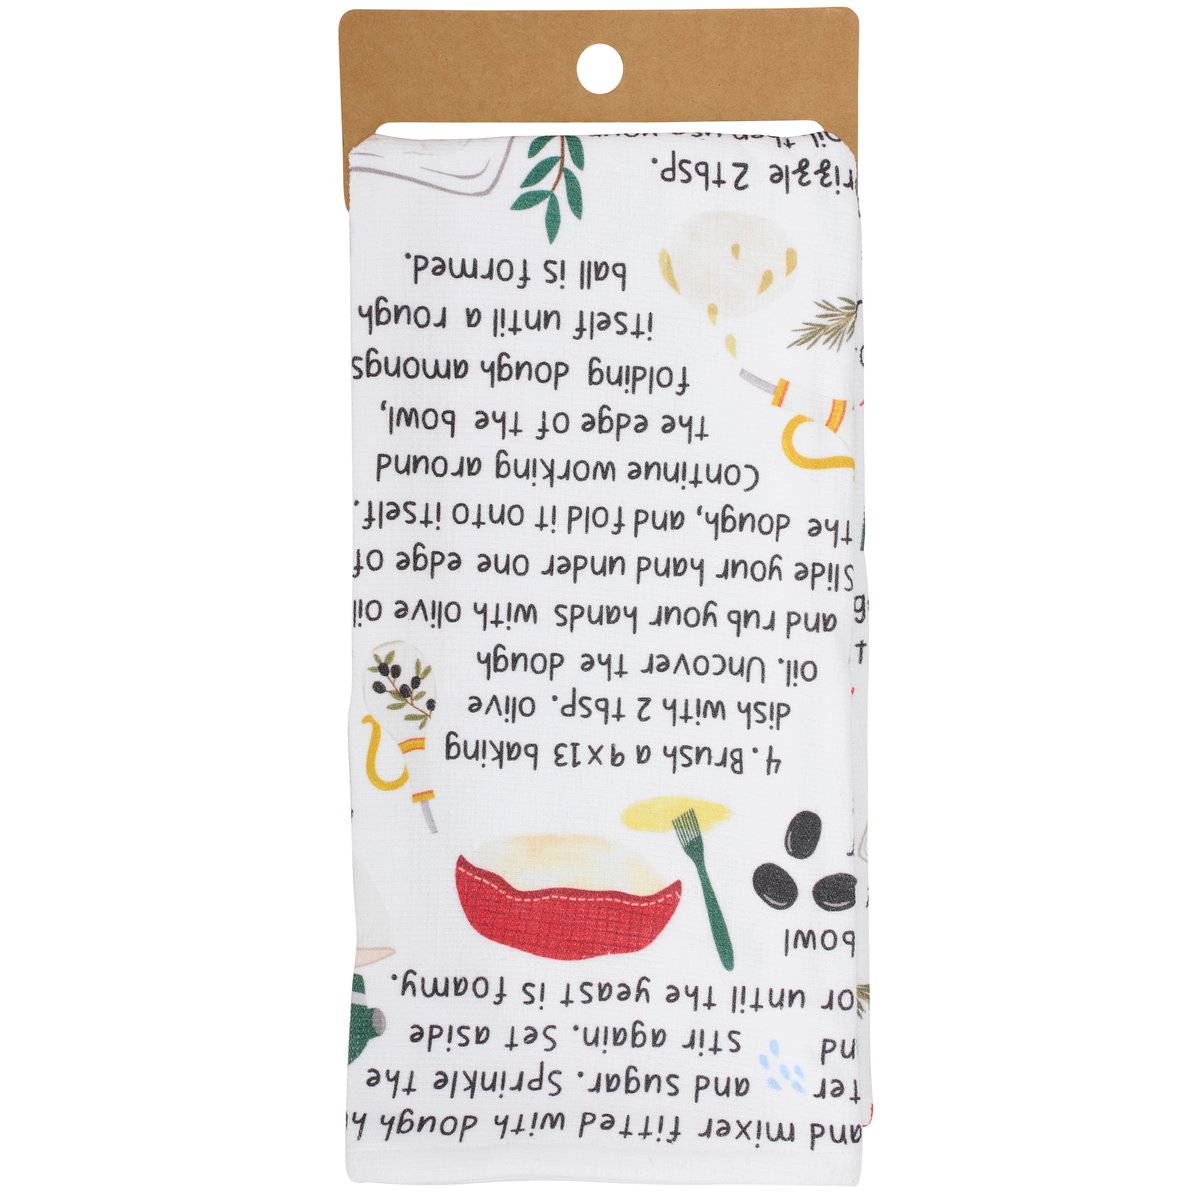 and mixer fitted with dough h
ter and sugar. Sprinkle the
nd stir again. Set aside
or until the yeast is foamy.
bowl
4. Brush a 9x13 baking
dish with 2 tbsp. olive
oil. Uncover the dough
and rub your hands with olive oil
Slide your hand under one edge of
the dough, and fold it onto itself.
Continue working around
the edge of the bowl,
folding dough amongs
itself until a rough
ball is formed.
rizzle 2 tbsp.
oil, then use your